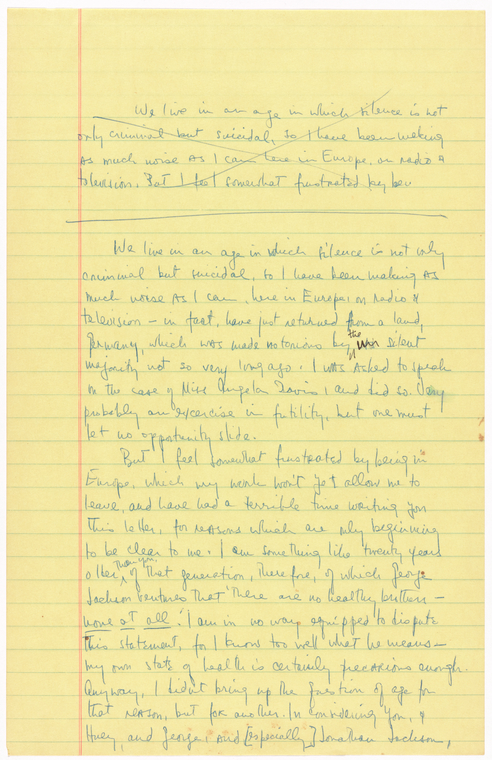 We live in an age in which silence is not
only criminal but suicidal, so I have been making
as much noise as I can here in Europe, on radio &
television. But I feel somewhat frustrated by
We live in an age in which silence is not only
criminal but suicidal, so I have been making as
much noise as I can, here in Europe, on radio &
television – in fact, have just returned from a land,
Germany, which was made notorious by the silent
majority not so very long ago. I was asked to speak
on the case of Miss Angela Davis, and did so. Very
probably an excercise in futility, but one must
let no opportunity slide.
But I feel somewhat frustrated by being in
Europe, which my work won't yet allow me to
leave, and have had a terrible time writing you
this letter, for reasons which are only beginning
to be clear to me. I am something like twenty years
older than you, of that generation, therefore, of which George
Jackson ventures that "there are no healthy brothers –
none at all." I am in no way equipped to dispute
this statement, for I know too well what he means –
my own state of health is certainly precarious enough.
Anyway, I didn't bring up the question of age for
that reason, but for another. In considering you, &
Huey, and George, and [especially] Jonathan Jackson,